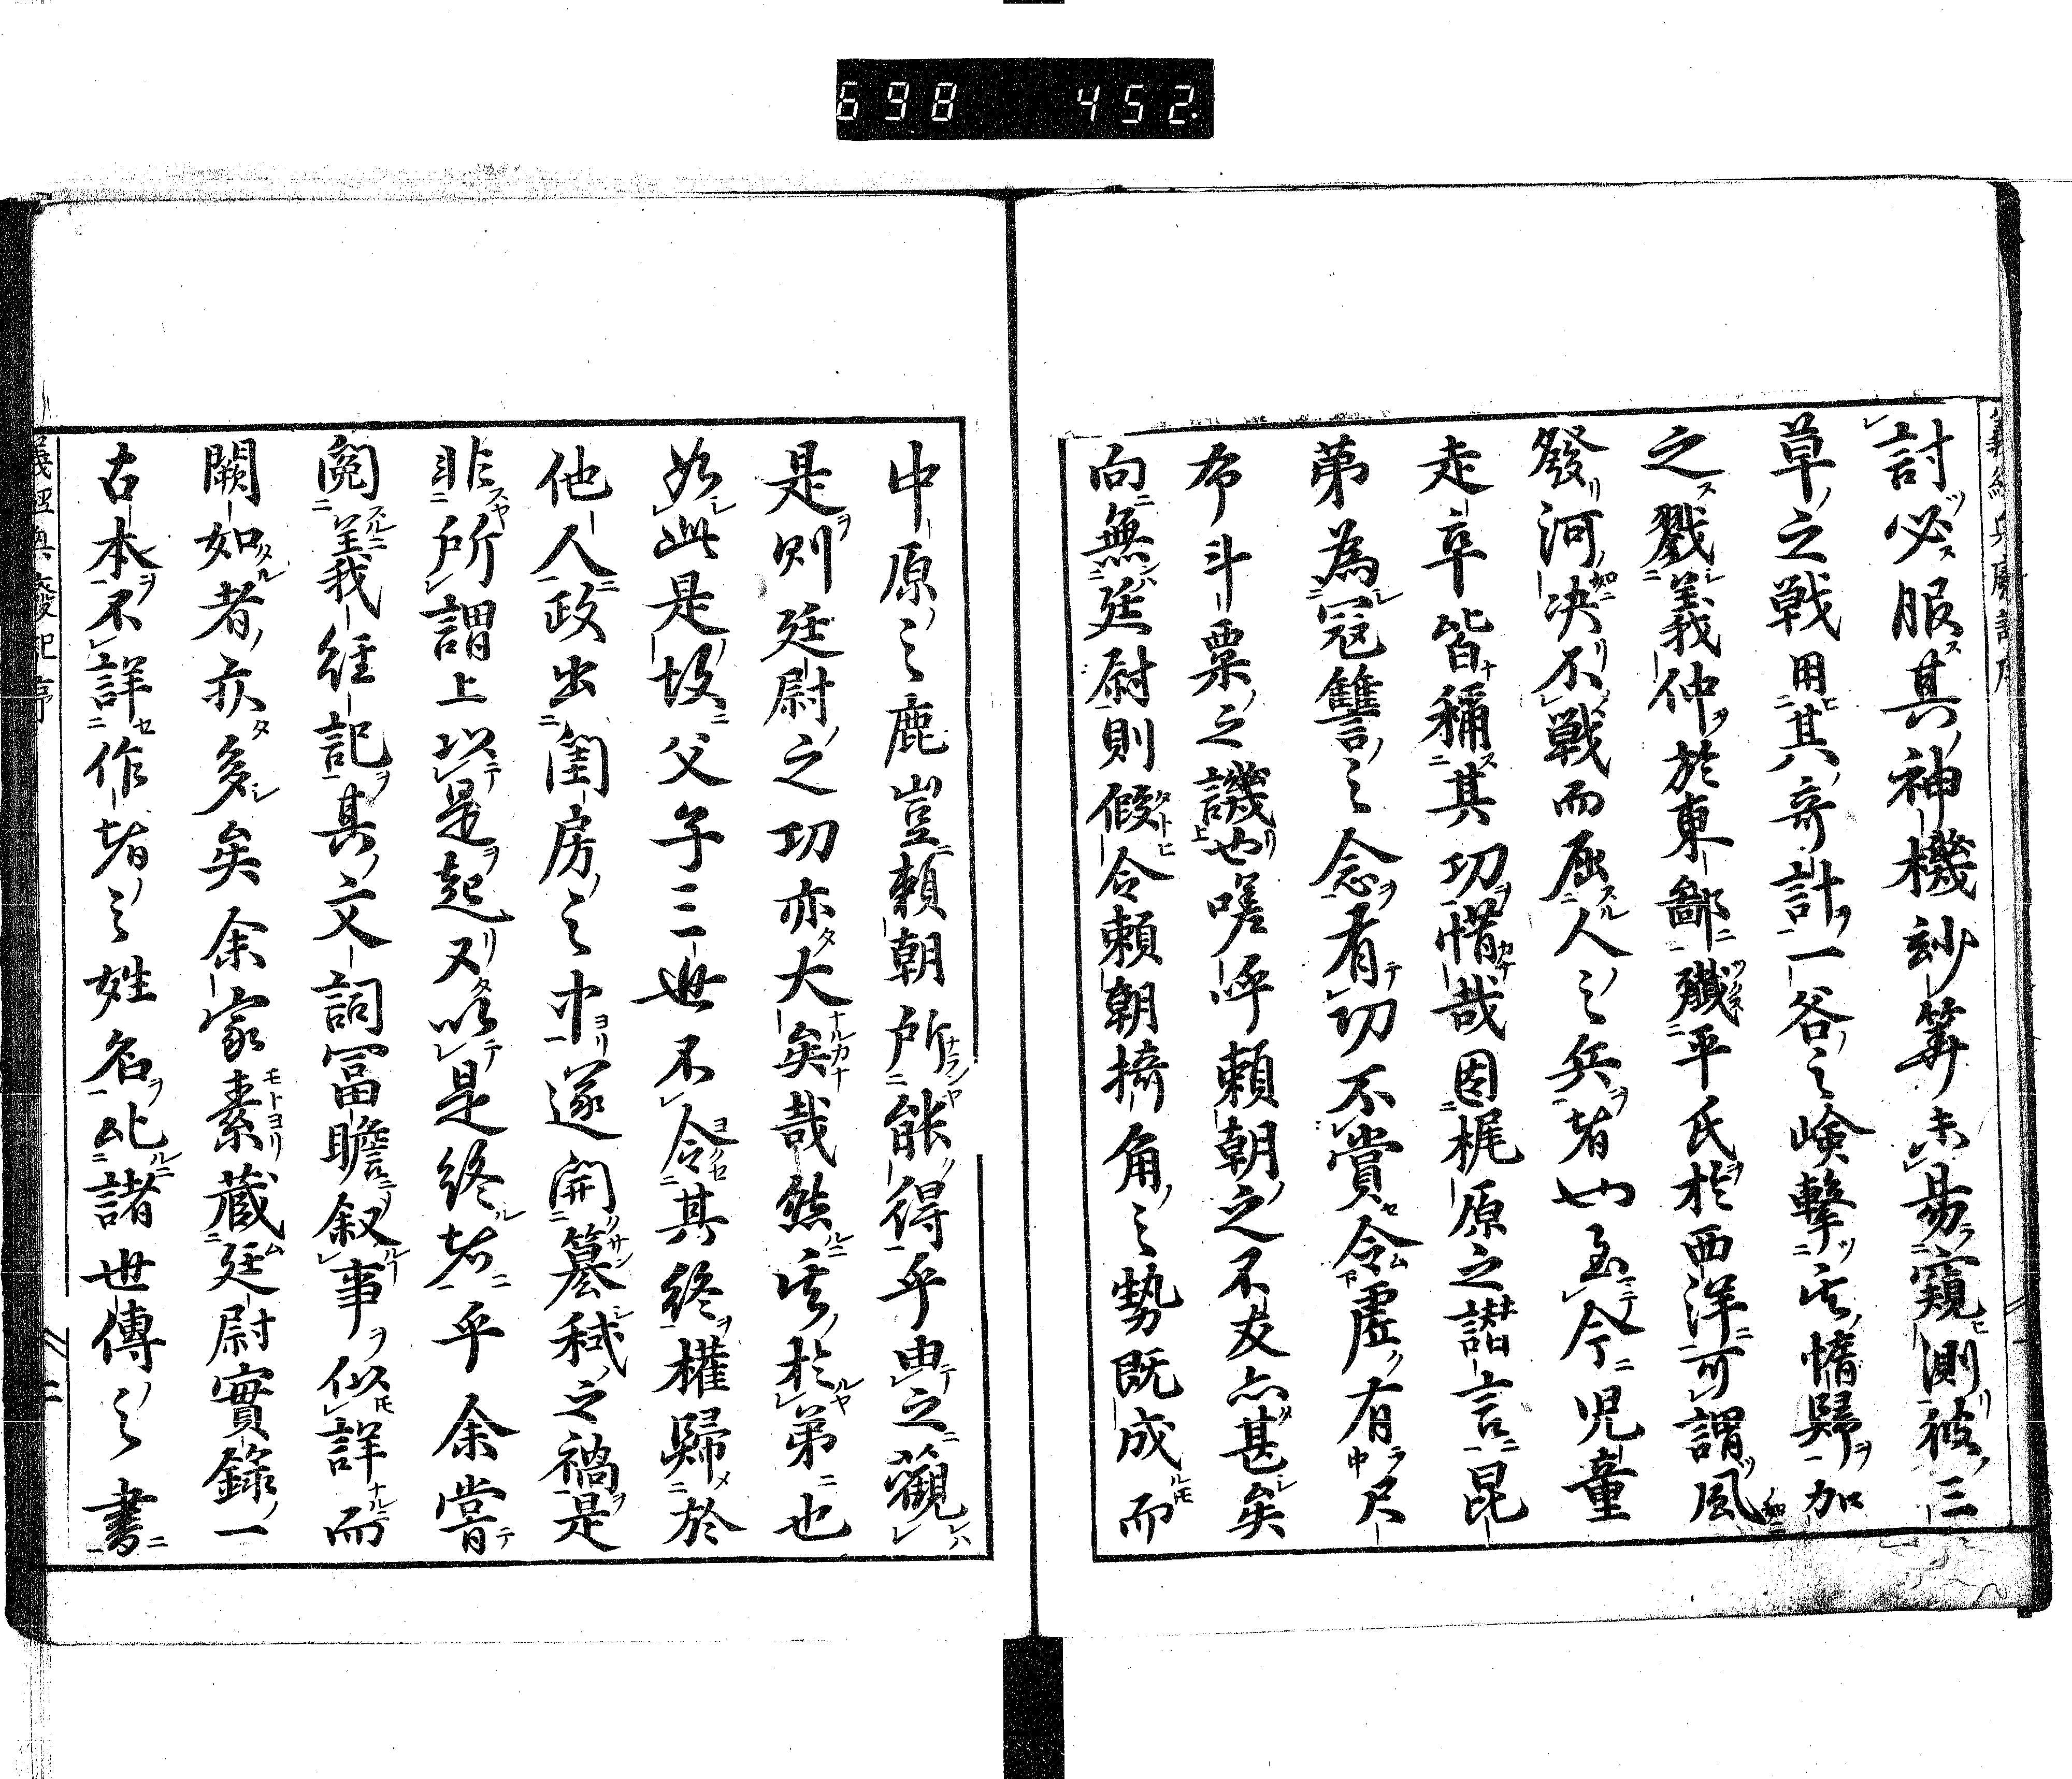 698 452
討必服其神機玅筭未易窺測彼三
草之戦用其奇計一谷之嶮擊其惰歸加
之戮義仲於東鄙殲平氏於西洋可謂風
發河决不戰而屈人之兵者也至今児童
走卒皆稱其功惜哉因梶原之譛言昆
弟為冦讐之念有功不賞令虛有尺
布斗粟之譏也嗟呼頼朝之不友亦甚矣
向無廷尉則假令頼朝掎角之勢既成而
中原之鹿豈頼朝所能得乎由之觀
是則廷尉之功亦大矣哉然其於弟也
如此是故父子三世不令其終權歸於
他人政出閨房之中遂開簒弑之禍是
非所謂上以是起又以是終者乎余甞
閱義経記其文詞冨贍叙事似詳而
闕如者亦多矣余家素藏廷尉實録一
古本不詳作者之姓名比諸世傳之書